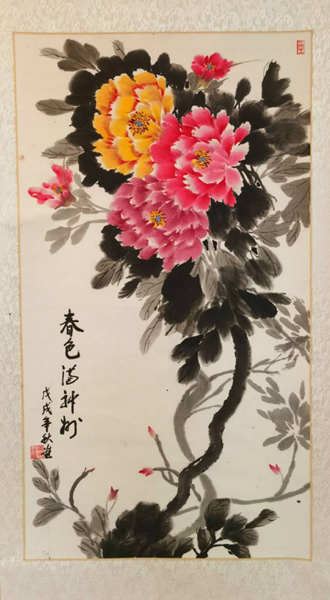 春色满神州
戊戌年秋